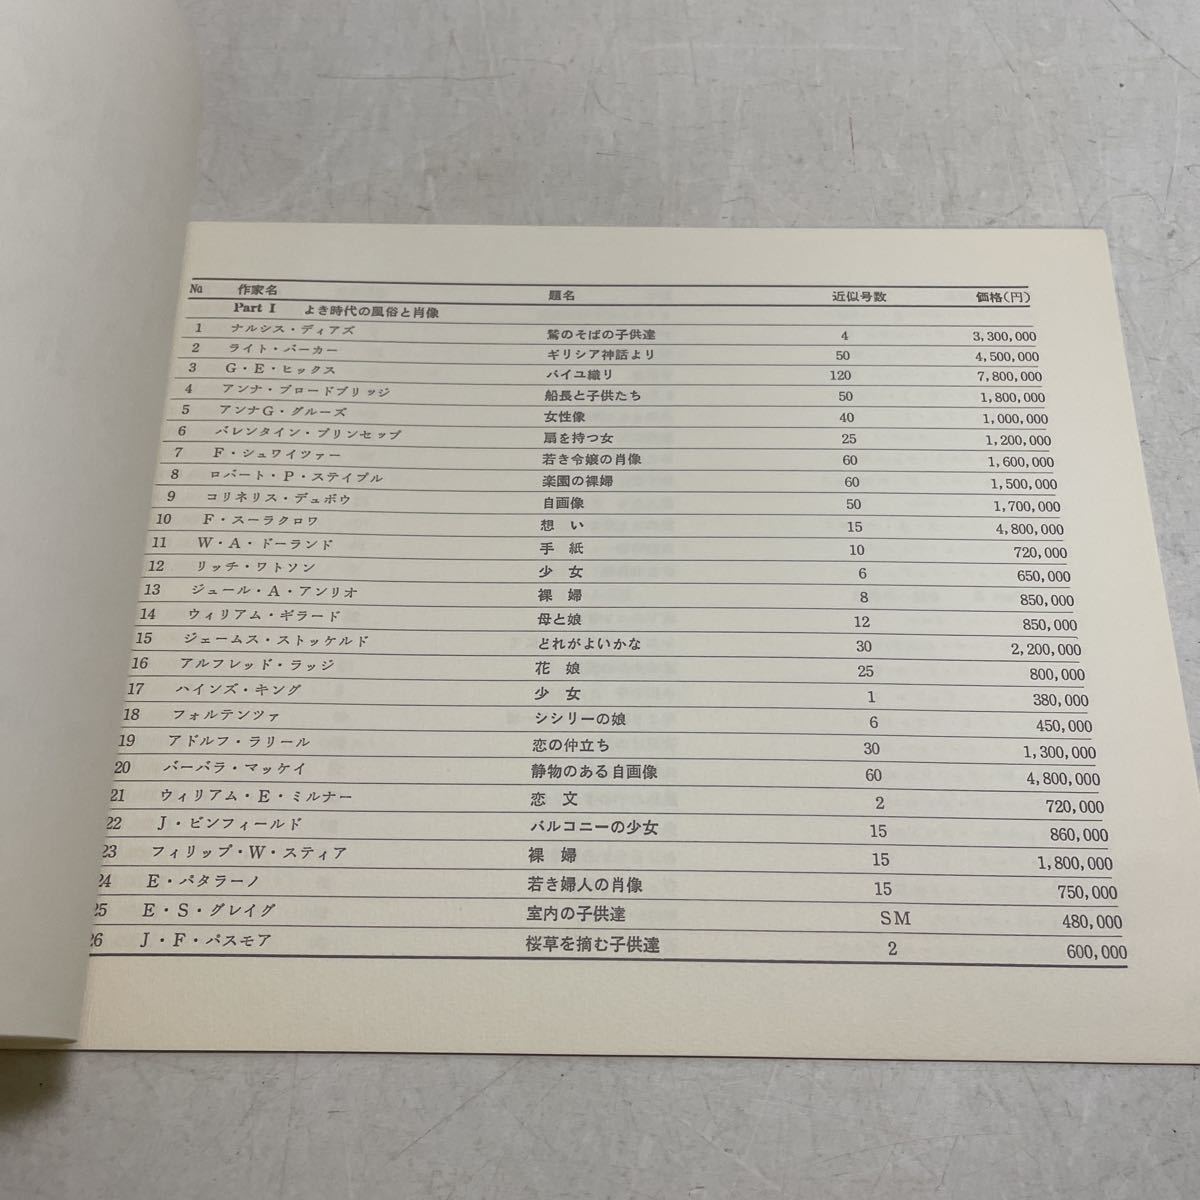 № 作家名 題名 近似号数 価格(円)
Part I よき時代の風俗と肖像
1 ナルシス・ディアズ 鷲のそばの子供達 4 3,300,000
2 ライト・バーカー ギリシア神話より 50 4,500,000
3 G・E・ヒックス バイユ織り 120 7,800,000
4 アンナ・ブロードブリッジ 船長と子供たち 50 1,800,000
5 アンナG・グルーズ 女性像 40 1,000,000
6 バレンタイン・プリンセップ 扇を持つ女 25 1,200,000
7 F・シュワイツァー 若き令嬢の肖像 60 1,600,000
8 ロバート・P・ステイプル 楽園の裸婦 60 1,500,000
9 コリネリス・デュボウ 自画像 50 1,700,000
10 F・スーラクロワ 想い 15 4,800,000
11 W・A・ドーランド 手紙 10 720,000
12 リッチ・ワトソン 少女 6 650,000
13 ジュール・A・アンリオ 裸婦 8 850,000
14 ウィリアム・ギラード 母と娘 12 850,000
15 ジェームス・ストッケルド どれがよいかな 30 2,200,000
16 アルフレッド・ラッジ 花娘 25 800,000
17 ハインズ・キング 少女 1 380,000
18 フォルテンツァ シシリーの娘 6 450,000
19 アドルフ・ラリール 恋の仲立ち 30 1,300,000
20 バーバラ・マッケイ 静物のある自画像 60 4,800,000
21 ウィリアム・E・ミルナー 恋文 2 720,000
22 J・ビンフィールド バルコニーの少女 15 860,000
23 フィリップ・W・スティア 裸婦 15 1,800,000
24 E・パタラーノ 若き婦人の肖像 15 750,000
25 E・S・グレイグ 室内の子供達 SM 480,000
26 J・F・パスモア 桜草を摘む子供達 2 600,000